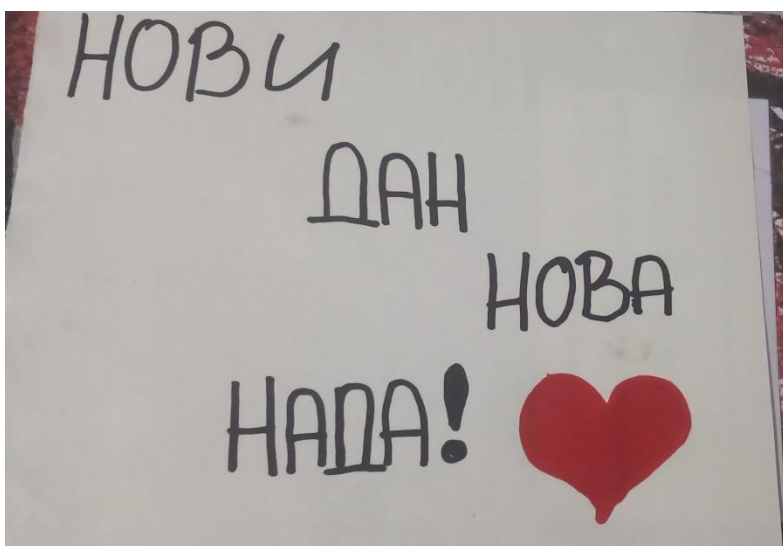 НОВИ
ДАН
НОВА
НАДА!